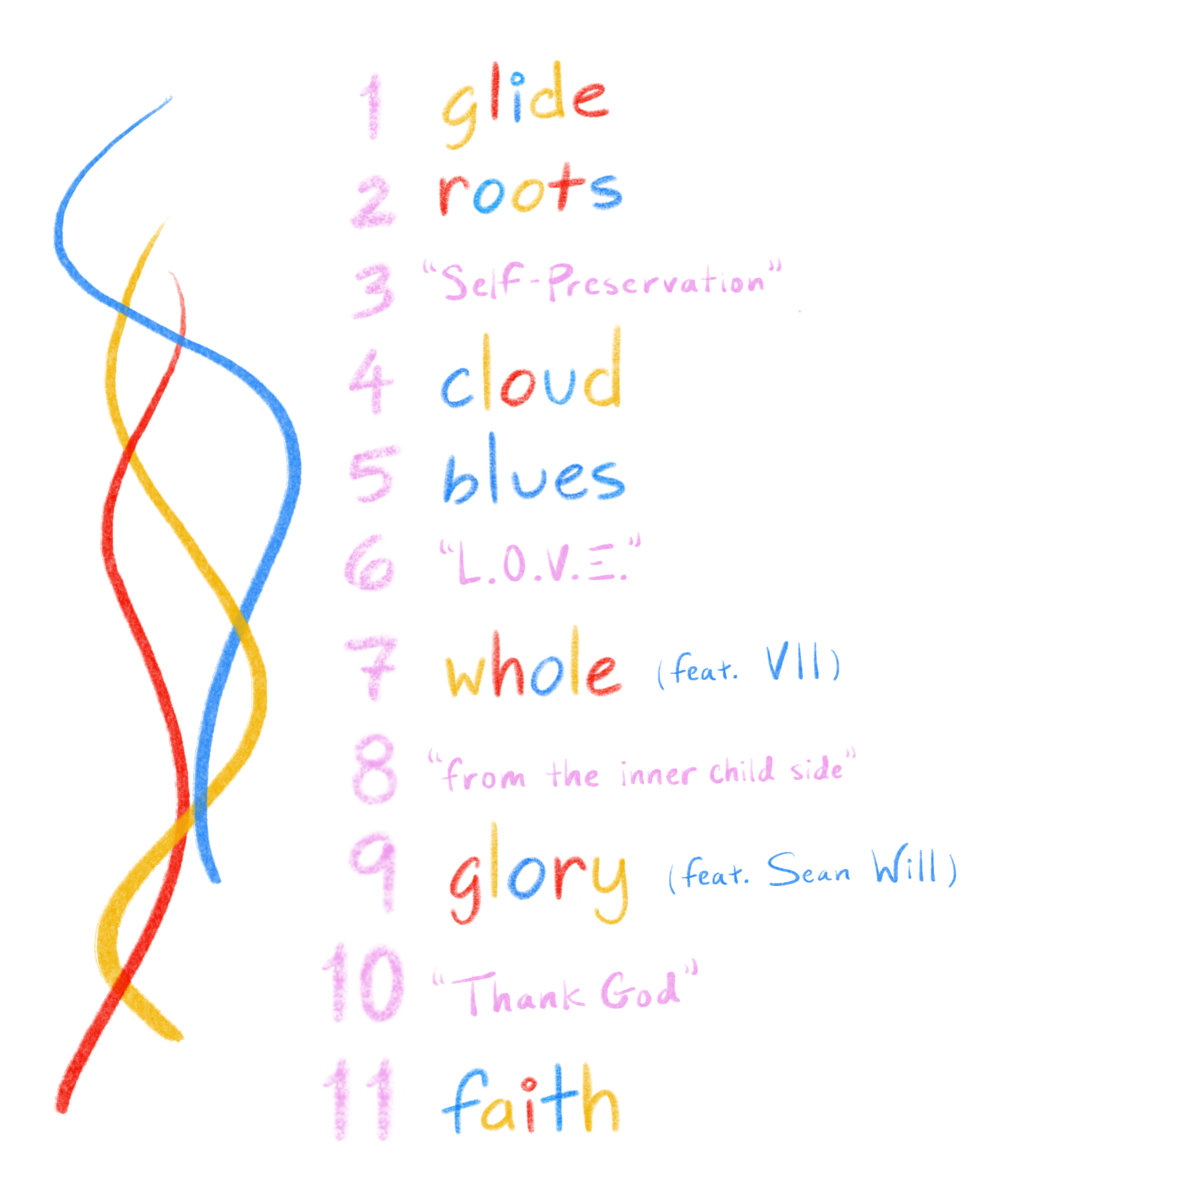 1 glide
2 roots
3 "Self-Preservation"
4 cloud
5 blues
6 "L.O.V.E."
7 whole (feat. VII)
8 "from the inner child side"
9 glory (feat. Sean Will)
10 "Thank God"
11 faith